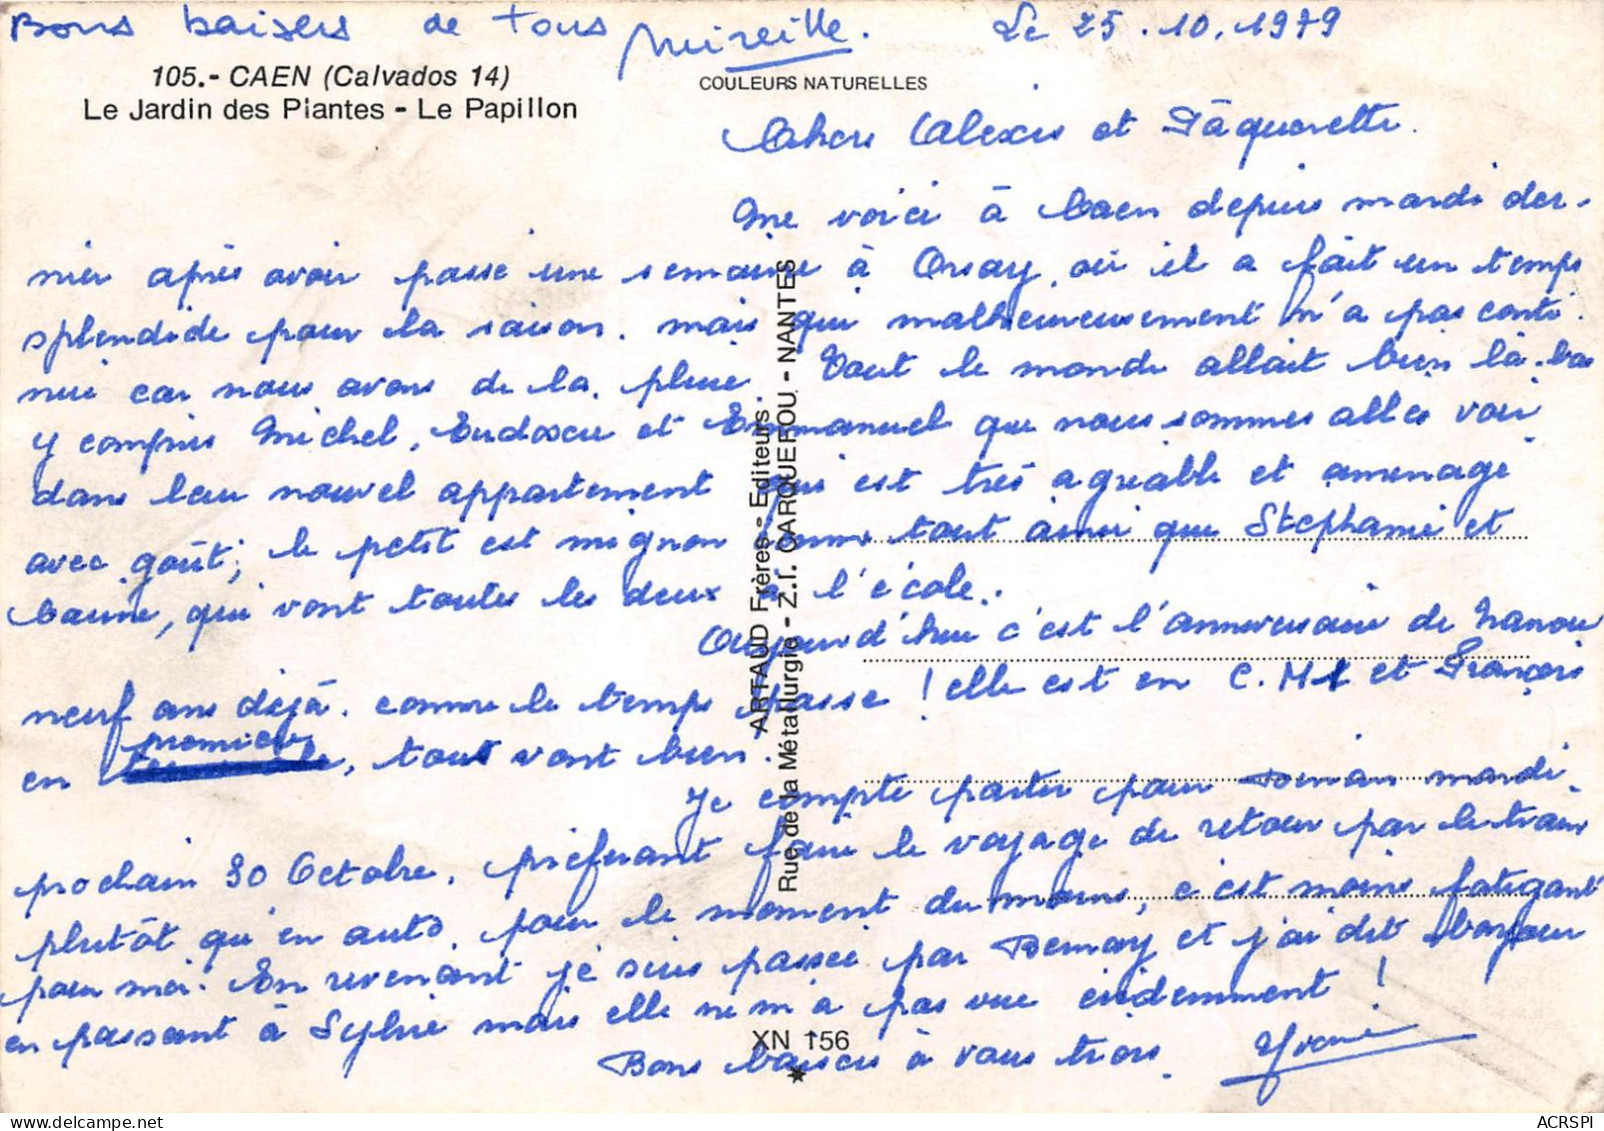 Bons baisers de tous Mireille. Le 25.10.1979
105.- CAEN (Calvados 14)
Le Jardin des Plantes - Le Papillon
COULEURS NATURELLES
Chers Alexis et Pâquerette.
Me voici à Caen depuis mardi der-
nier après avoir passé une semaine à Orsay, où il a fait un temps
splendide pour la saison. mais qui malheureusement n'a pas conti-
nué car nous avons de la pluie. Tout le monde allait bien là-bas
y compris Michel, Eudoxie et Emmanuel que nous sommes allés voir
dans leur nouvel appartement qui est très agréable et aménagé
avec goût; le petit est mignon comme tout ainsi que Stéphanie et
qui vont toutes les deux à l'école.
Aujourd'hui c'est l'anniversaire de Nanou
neuf ans déjà. comme le temps passe ! elle est en C.M1 et François
en première, tous vont bien.
Je compte partir pour mardi
prochain 30 Octobre, préférant faire le voyage de retour par le train
plutôt qu'en auto, pour le moment du moins, c'est moins fatigant
pour moi. En revenant je suis passée par Bernay et j'ai dit bonjour
en passant à Sylvie mais elle ne m'a pas vue évidemment !
Bons baisers à vous trois. Yvonne
ARTAUD Frères - Editeurs
Rue de la Métallurgie - Z.I. CARQUEFOU - NANTES
XN 156
ACRSPI